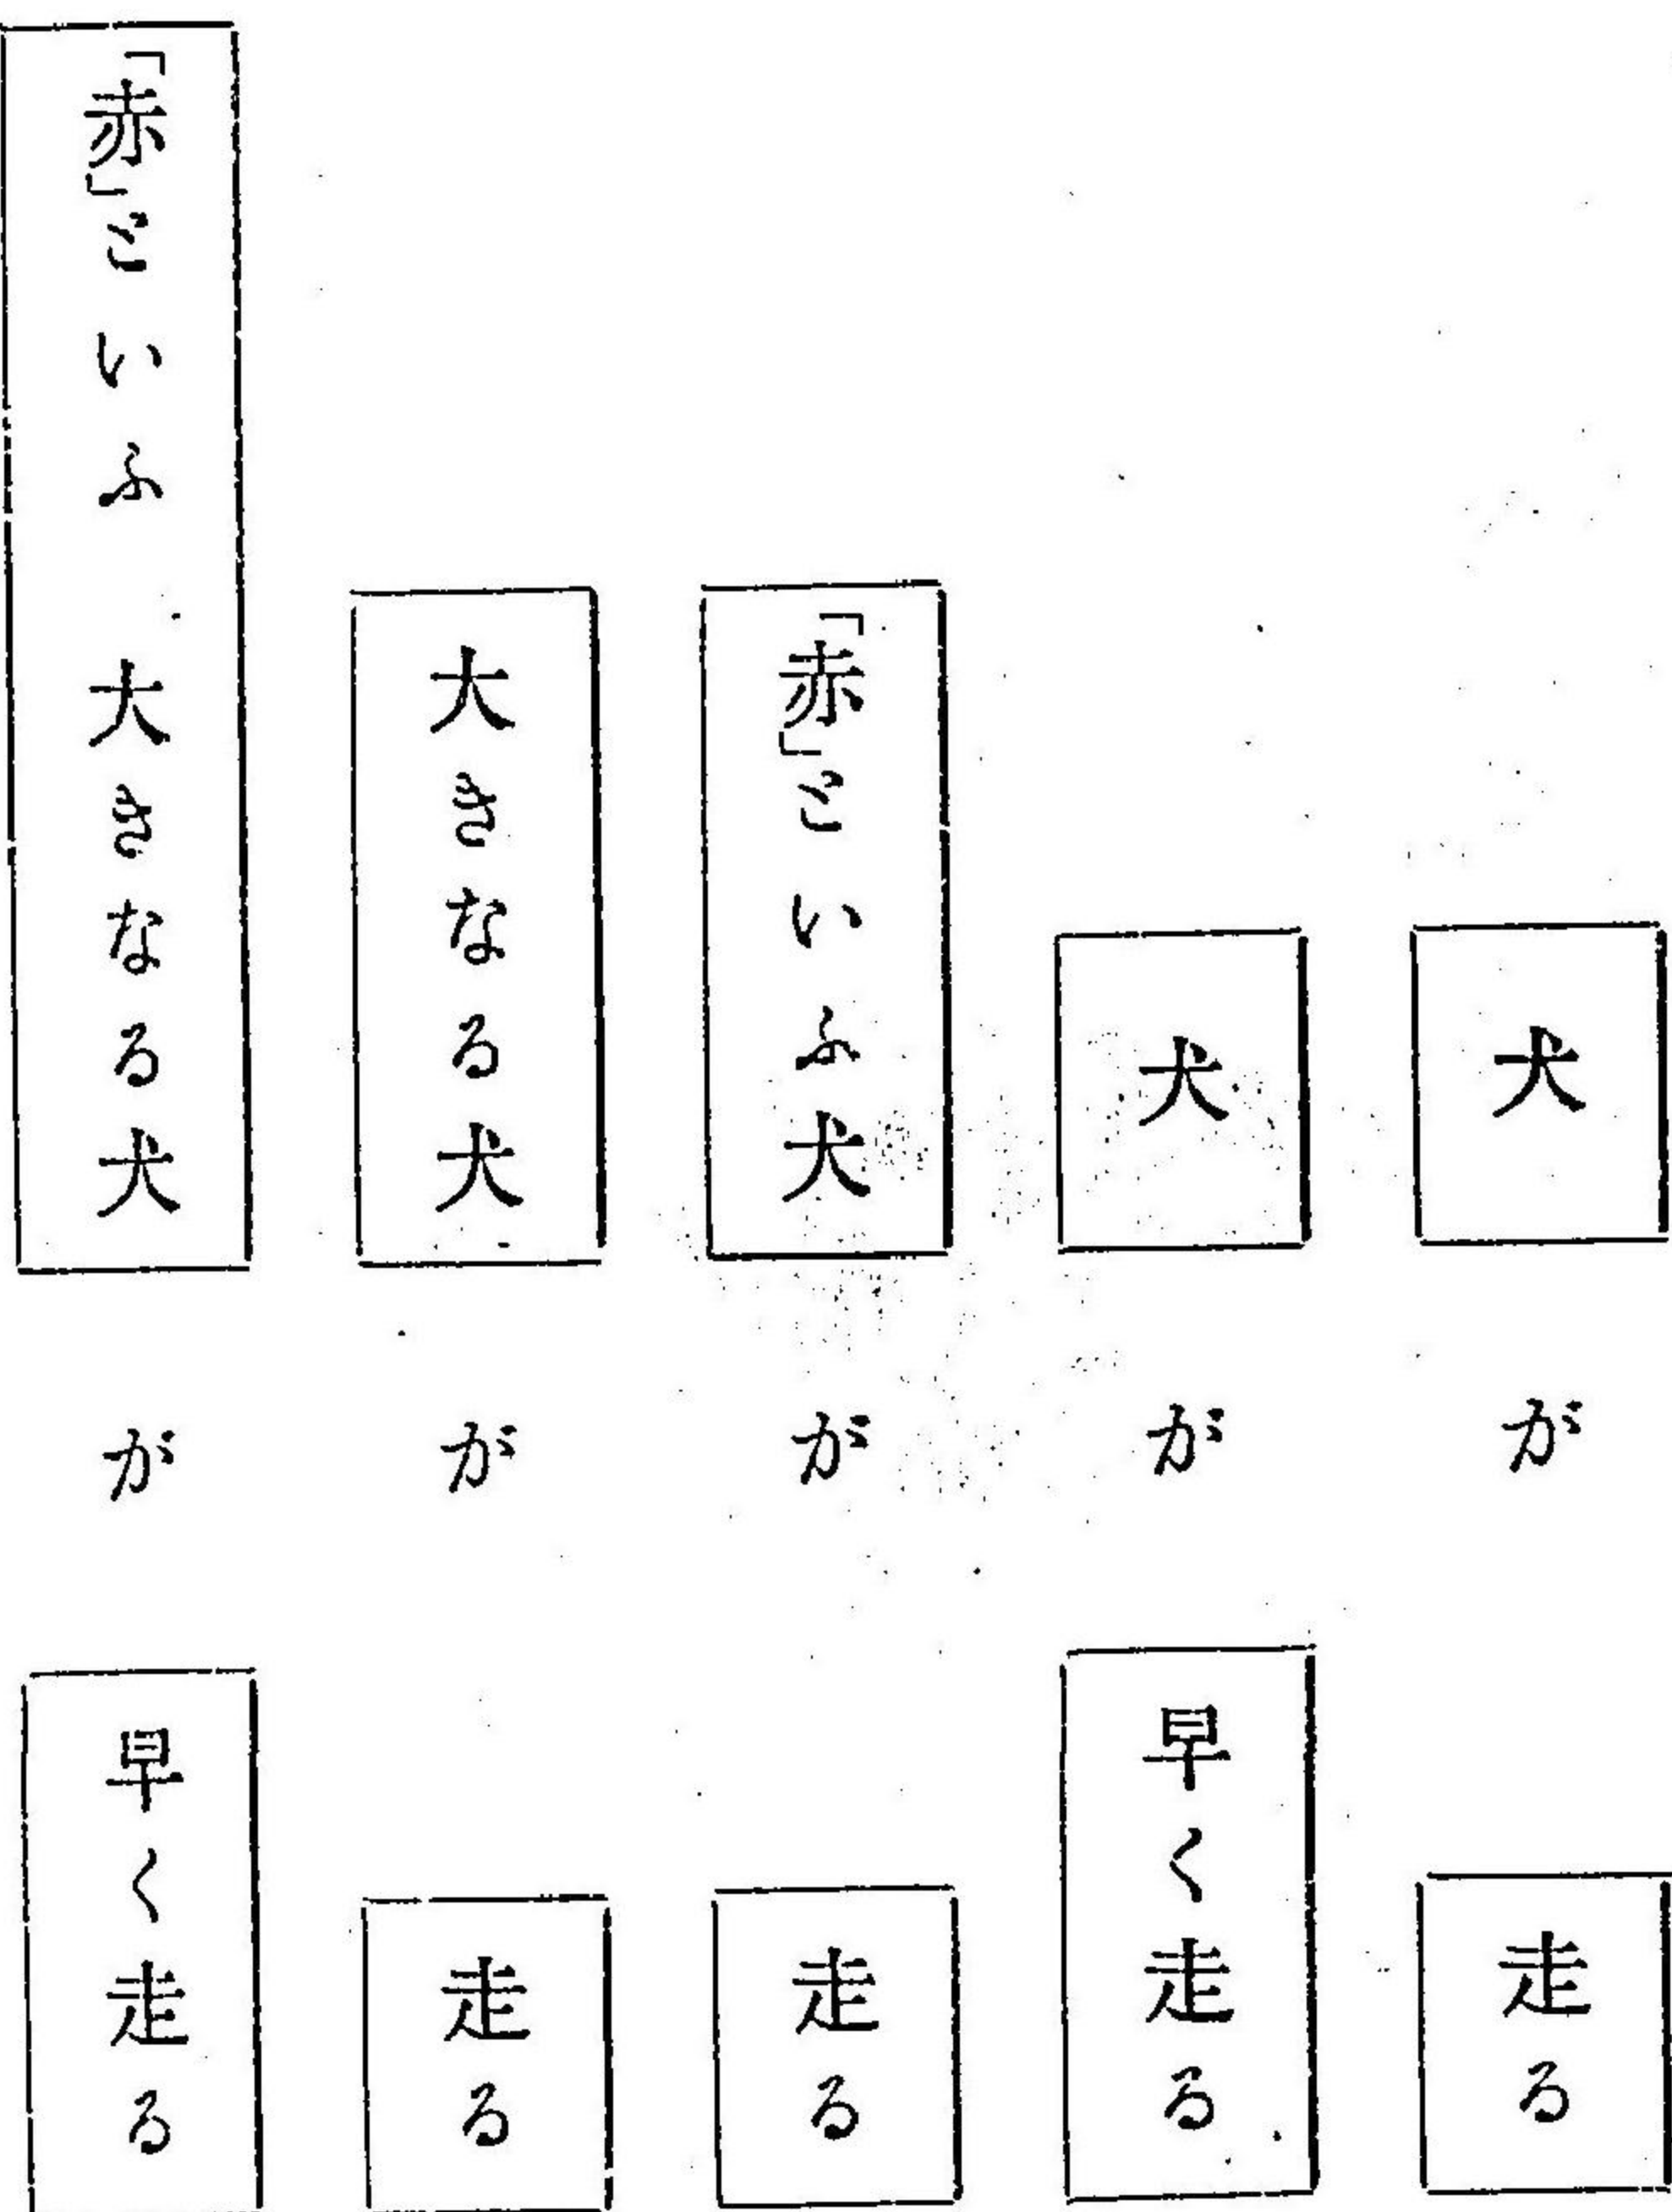 犬 が 走る
犬 が 早く走る
「赤」といふ犬 が 走る
大きなる犬 が 走る
「赤」といふ 大きなる犬 が 早く走る